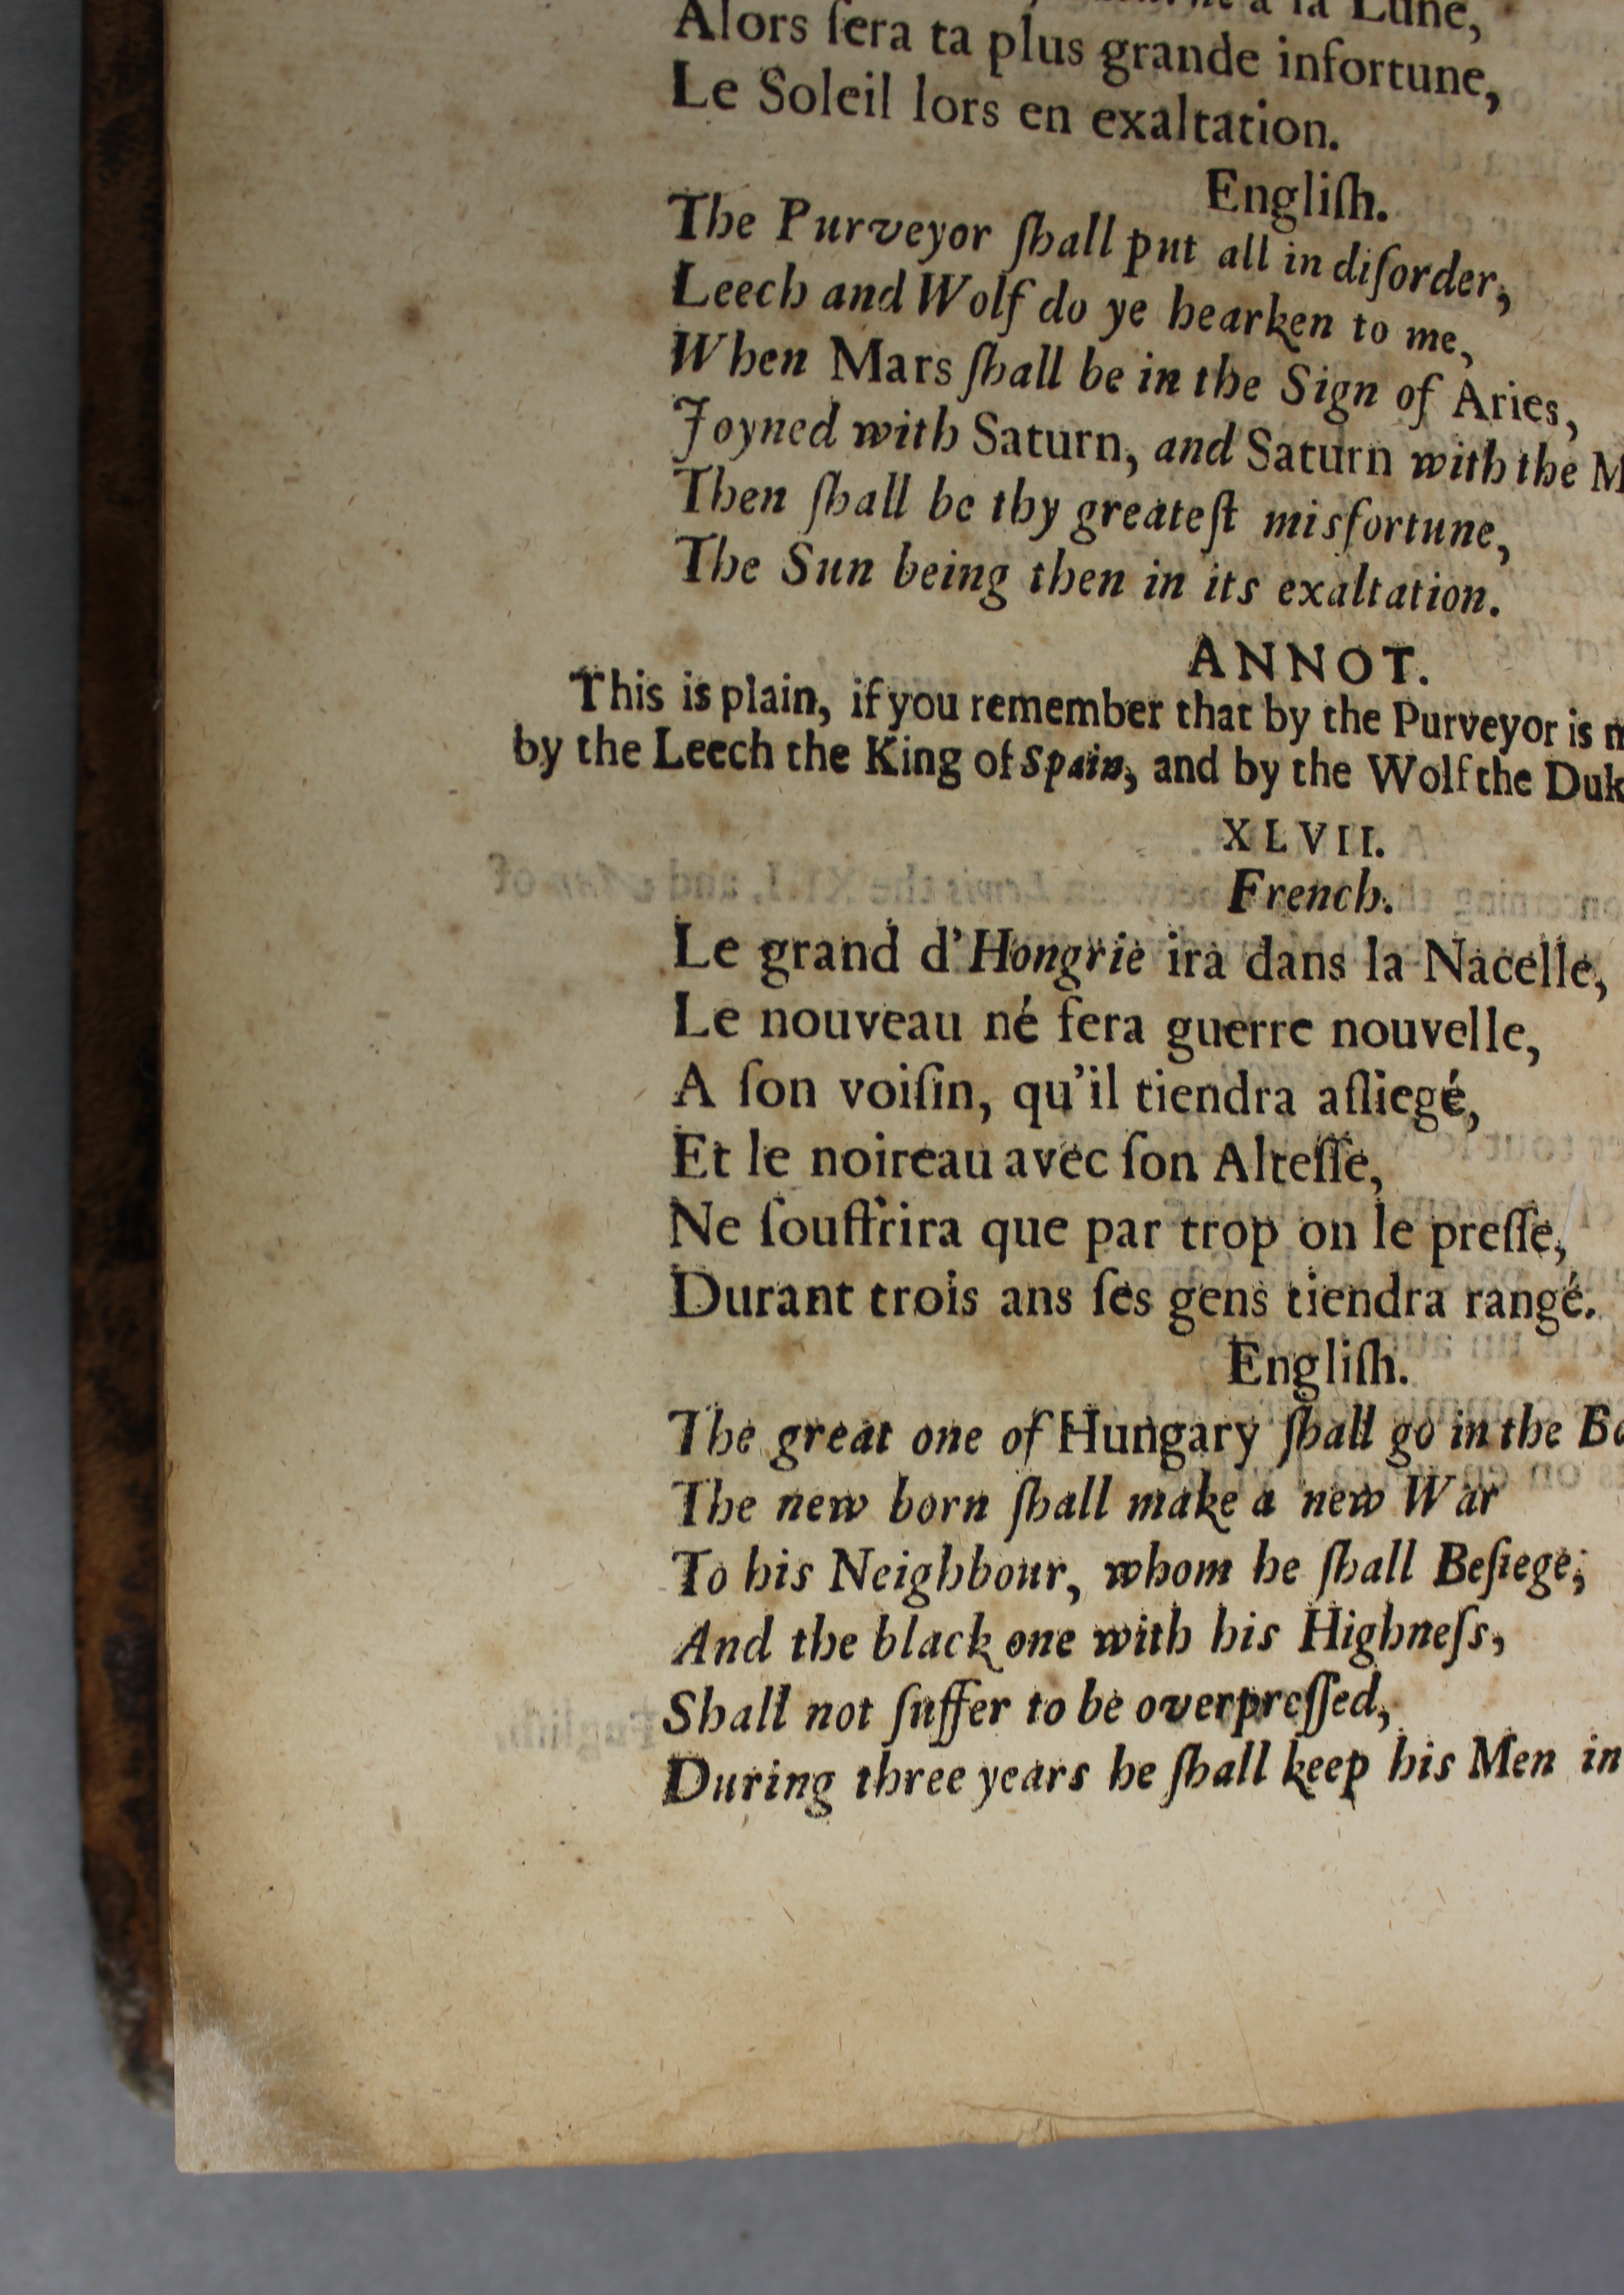 a la Lune,
Alors ſera ta plus grande infortune,
Le Soleil lors en exaltation.
Engliſh.
The Purveyor ſhall put all in diſorder,
Leech and Wolf do ye hearken to me,
When Mars ſhall be in the Sign of Aries,
Joyned with Saturn, and Saturn with the M
Then ſhall be thy greateſt misfortune,
The Sun being then in its exaltation.
ANNOT.
This is plain, if you remember that by the Purveyor is
by the Leech the King of Spain, and by the Wolf the Duk
XLVII.
French.
Le grand d'Hongrie ira dans la Nacelle,
Le nouveau né fera guerre nouvelle,
A ſon voiſin, qu'il tiendra aſſiegé,
Et le noireau avec ſon Alteſſe,
Ne ſouffrira que par trop on le preſſe,
Durant trois ans ſes gens tiendra rangé.
Engliſh.
The great one of Hungary ſhall go in the Bo
The new born ſhall make a new War
To his Neighbour, whom he ſhall Beſiege;
And the black one with his Highneſs,
Shall not ſuffer to be overpreſſed,
During three years he ſhall keep his Men in